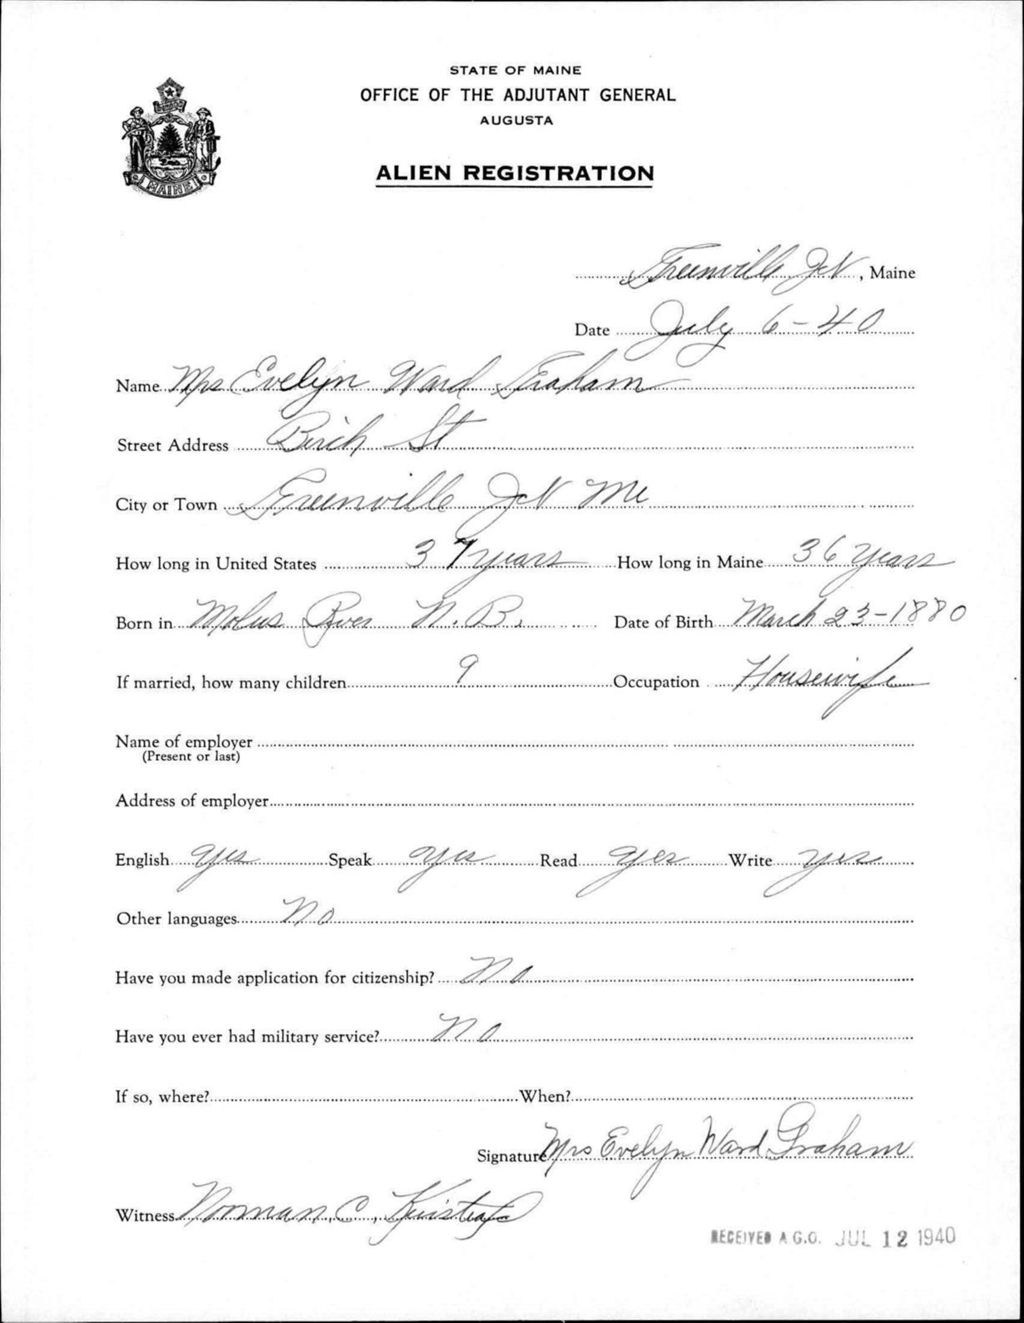 STATE OF MAINE
OFFICE OF THE ADJUTANT GENERAL
AUGUSTA
ALIEN REGISTRATION
MAINE
Greenville Jct, Maine
Date July 6-40
Name Mrs Evelyn Ward Graham
Street Address Birch St
City or Town Greenville Jct Me
How long in United States 37 years How long in Maine 36 years
Born in Molus River N.B. Date of Birth March 23-1880
If married, how many children 9 Occupation Housewife
Name of employer
(Present or last)
Address of employer
English Yes Speak Yes Read Yes Write Yes
Other languages No
Have you made application for citizenship? No
Have you ever had military service? No
If so, where? When?
Signature Mrs Evelyn Ward Graham
Witness Norman C.
RECEIVED A.G.O. JUL 12 1940